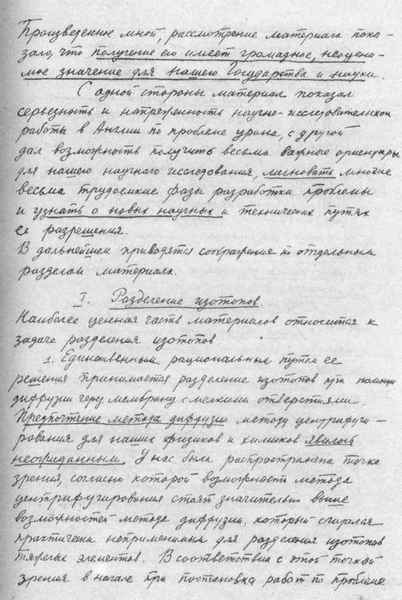 Произведенное мной, рассмотрение материала пока-
зало, что получение его имеет громадное, неоцени-
мое значение для нашего Государства и науки.
С одной стороны материал показал
серьезность и напряженность научно-исследовательской
работы в Англии по проблеме урана, с другой
дал возможность получить весьма важные ориентиры
для нашего научного исследования, миновать многие
весьма трудоемкие фазы разработки проблемы
и узнать о новых научных и технических путях
ее разрешения.
В дальнейшем приводятся соображения по отдельным
разделам материала.
I. Разделение изотопов.
Наиболее ценная часть материалов относится к
задаче разделения изотопов
1. Единственным рациональным путем ее
решения принимается разделение изотопов при помощи
диффузии через мембрану с мелкими отверстиями.
Предпочтение метода диффузии методу центрифуги-
рования для наших физиков и химиков явилось
неожиданным. У нас была распространена точка
зрения, согласно которой возможности метода
центрифугирования стоят значительно выше
возможностей метода диффузии, который считался
практически неприменимым для разделения изотопов
тяжелых элементов. В соответствии с этой точкой
зрения вначале при постановке работ по проблеме